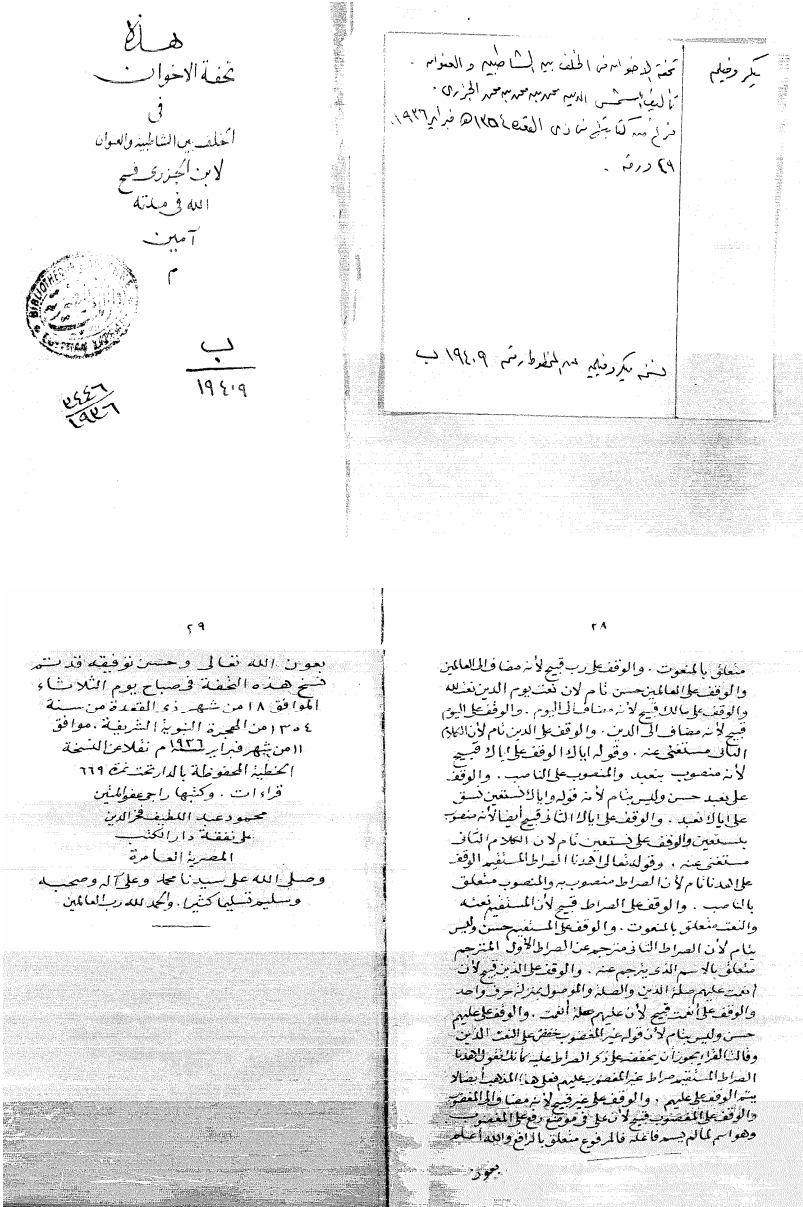 هذه
تحفة الاخوان
فى
الخلف بين الشاطبية والعنوان
لابن الجزرى فسح
الله فى مدته
آمين
م
ب
١٩٤٠٩
٣٤٤٦
١٩٣٦
ميكروفيلم
تحفة الاخوان فى الخلف بين الشاطبية والعنوان .
تأليف شمس الدين محمد بن محمد بن محمد الجزرى .
فرغ من كتابتها فى ذى القعدة ١٣٥٤ھ فبراير ١٩٣٦.
٢٩ ورقة .
نسخة ميكروفيلم عن المخطوط رقم ١٩٤٠٩ ب
٢٨
متعلق بالمنعوت . والوقف على رب قبيح لأنه مضاف الى العالمين
والوقف على العالمين حسن تام لان نعت يوم الدين نعت لله
والوقف على مالك قبيح لأنه مضاف الى اليوم . والوقف على اليوم
قبيح لأنه مضاف الى الدين . والوقف على الدين تام لأن الكلام
الثانى مستغنى عنه . وقوله اياك الوقف على اياك قبيح
لأنه منصوب بنعبد والمنصوب على الناصب . والوقف
على نعبد حسن وليس بتام لأنه قوله واياك نستعين نسق
على اياك نعبد . والوقف على اياك الثانى قبيح أيضا لأنه منصوب
بنستعين والوقف على نستعين تام لان الكلام الثانى
مستغنى عنه . وقوله تعالى اهدنا الصراط المستقيم الوقف
على اهدنا تام لأن الصراط منصوب به والمنصوب متعلق
بالناصب . والوقف على الصراط قبيح لأن المستقيم نعته
والنعت متعلق بالمنعوت . والوقف على المستقيم حسن وليس
بتام لأن الصراط الثانى مترجم عن الصراط الأول المترجم
متعلق بالاسم الذى يترجم عنه . والوقف على الذين قبيح لأن
أنعمت عليهم صلة الذين والصلة والموصول بمنزلة حرف واحد
والوقف على أنعمت قبيح لأن عليهم صلة أنعمت . والوقف على عليهم
حسن وليس بتام لأن قوله غير المغضوب خفض على النعت الذين
وقال الفرا يجوز أن يخفضه على ذكر الصراط عليه كأنك تقول اهدنا
الصراط المستقيم صراط غير المغضوب عليهم فعلى هذا المذهب أيضا لا
يتم الوقف على عليهم . والوقف على غير قبيح لأنه مضاف الى المغضوب
والوقف على المغضوب قبيح لأن على فى موضع رفع على المغضوب
وهو اسم لما لم يسم فاعله فالمرفوع متعلق بالرافع والله أعلم
بعون
٢٩
بعون الله تعالى وحسن توفيقه قد تم
نسخ هذه التحفة فى صباح يوم الثلاثاء
الموافق ١٨ من شهر ذى القعدة من سنة
١٣٥٤ من الهجرة النبوية الشريفة . موافق
١١ من شهر فبراير سنة ١٩٣٦ م نقلا عن النسخة
الخطية المحفوظة بالدار تحت نمرة ٦٦٩
قراءات . وكتبها راجى عفو المتين
محمود عبد اللطيف فخر الدين
على نفقة دار الكتب
المصرية العامرة
وصلى الله على سيدنا محمد وعلى آله وصحبه
وسليم تسليما كثيرا . والحمد لله رب العالمين